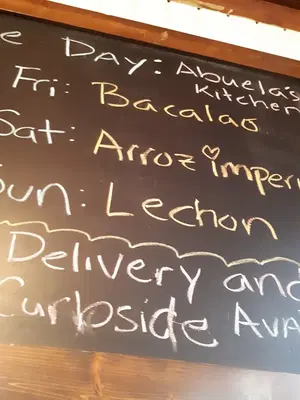 e Day: Abuela's
Kitchen
Fri: Bacalao
Sat: Arroz imperi
Sun: Lechon
Delivery and
Curbside Ava